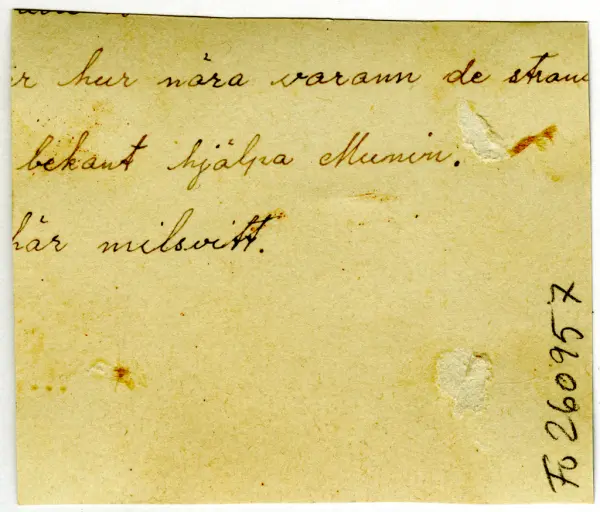 r hur nära varann de stran
bekant hjälpa Munin.
här milsvitt.
Fo 260957